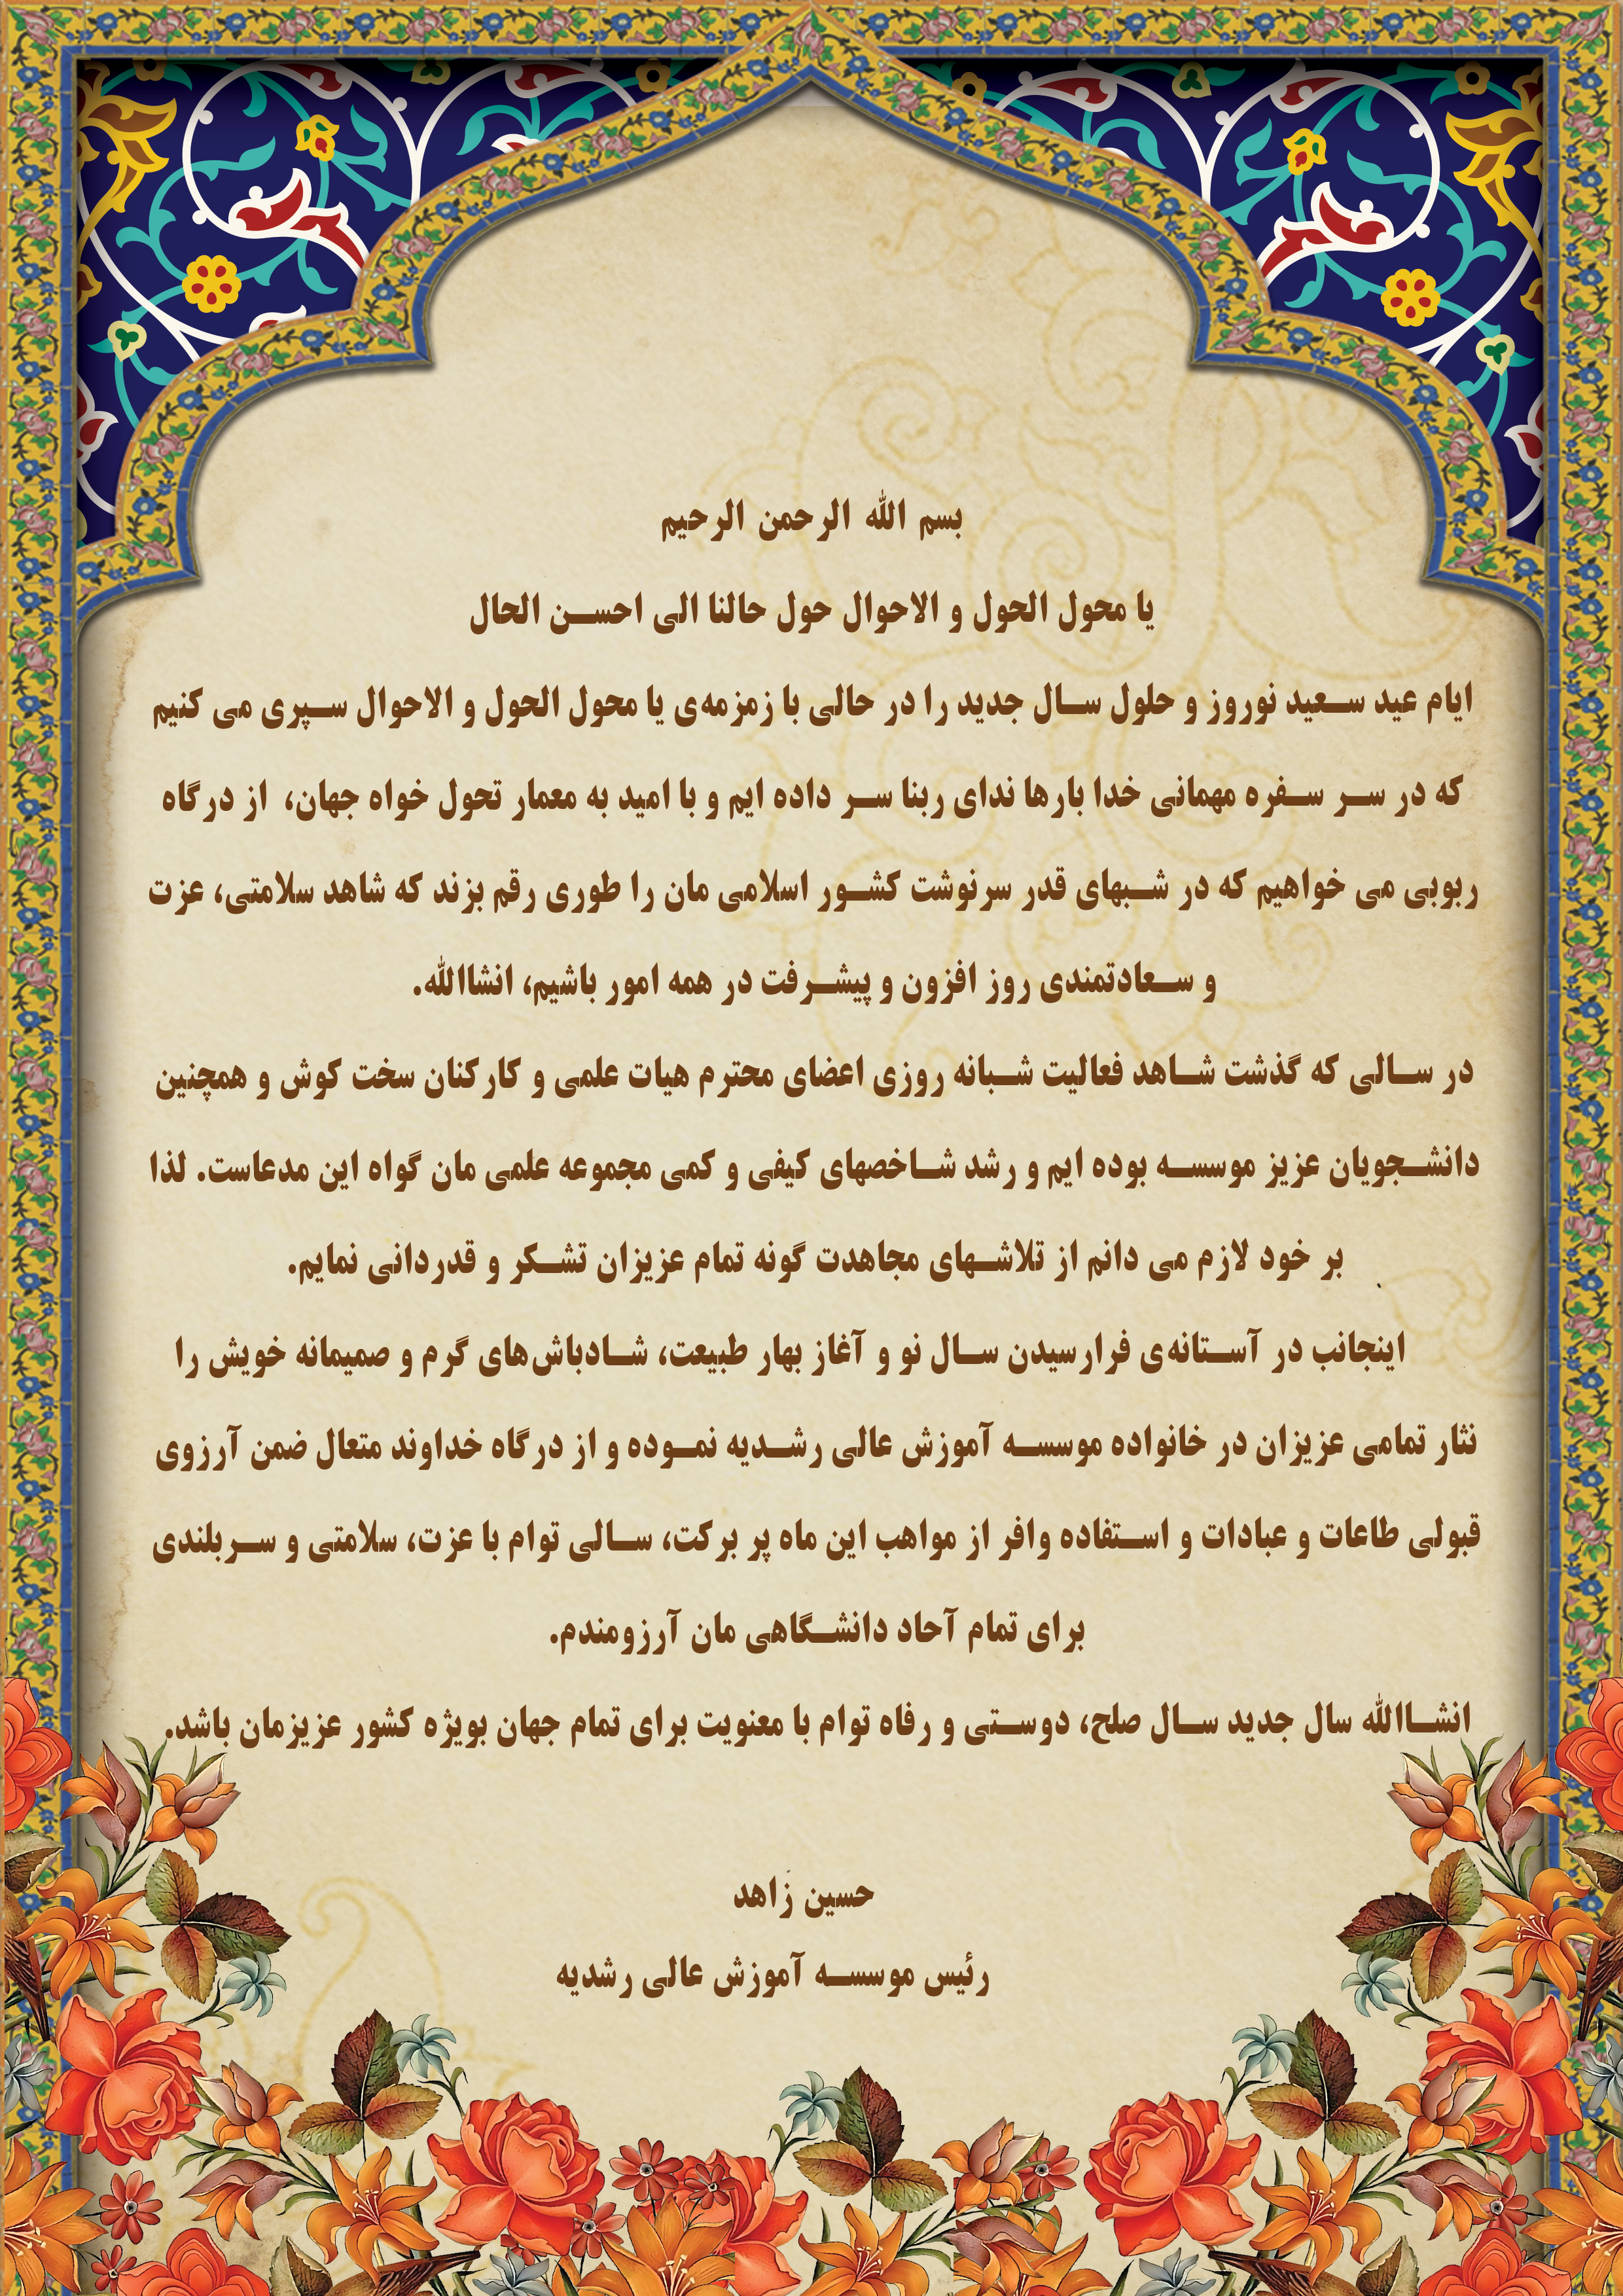 بسم الله الرحمن الرحیم
یا محول الحول و الاحوال حول حالنا الی احسن الحال
ایام عید سعید نوروز و حلول سال جدید را در حالی با زمزمه‌ی یا محول الحول و الاحوال سپری می کنیم
که در سر سفره مهمانی خدا بارها ندای ربنا سر داده ایم و با امید به معمار تحول خواه جهان، از درگاه
ربوبی می خواهیم که در شبهای قدر سرنوشت کشور اسلامی مان را طوری رقم بزند که شاهد سلامتی، عزت
و سعادتمندی روز افزون و پیشرفت در همه امور باشیم، انشاالله.
در سالی که گذشت شاهد فعالیت شبانه روزی اعضای محترم هیات علمی و کارکنان سخت کوش و همچنین
دانشجویان عزیز موسسه بوده ایم و رشد شاخصهای کیفی و کمی مجموعه علمی مان گواه این مدعاست. لذا
بر خود لازم می دانم از تلاشهای مجاهدت گونه تمام عزیزان تشکر و قدردانی نمایم.
اینجانب در آستانه‌ی فرارسیدن سال نو و آغاز بهار طبیعت، شادباش‌های گرم و صمیمانه خویش را
نثار تمامی عزیزان در خانواده موسسه آموزش عالی رشدیه نموده و از درگاه خداوند متعال ضمن آرزوی
قبولی طاعات و عبادات و استفاده وافر از مواهب این ماه پر برکت، سالی توام با عزت، سلامتی و سربلندی
برای تمام آحاد دانشگاهی مان آرزومندم.
انشاالله سال جدید سال صلح، دوستی و رفاه توام با معنویت برای تمام جهان بویژه کشور عزیزمان باشد.
حسین زاهد
رئیس موسسه آموزش عالی رشدیه